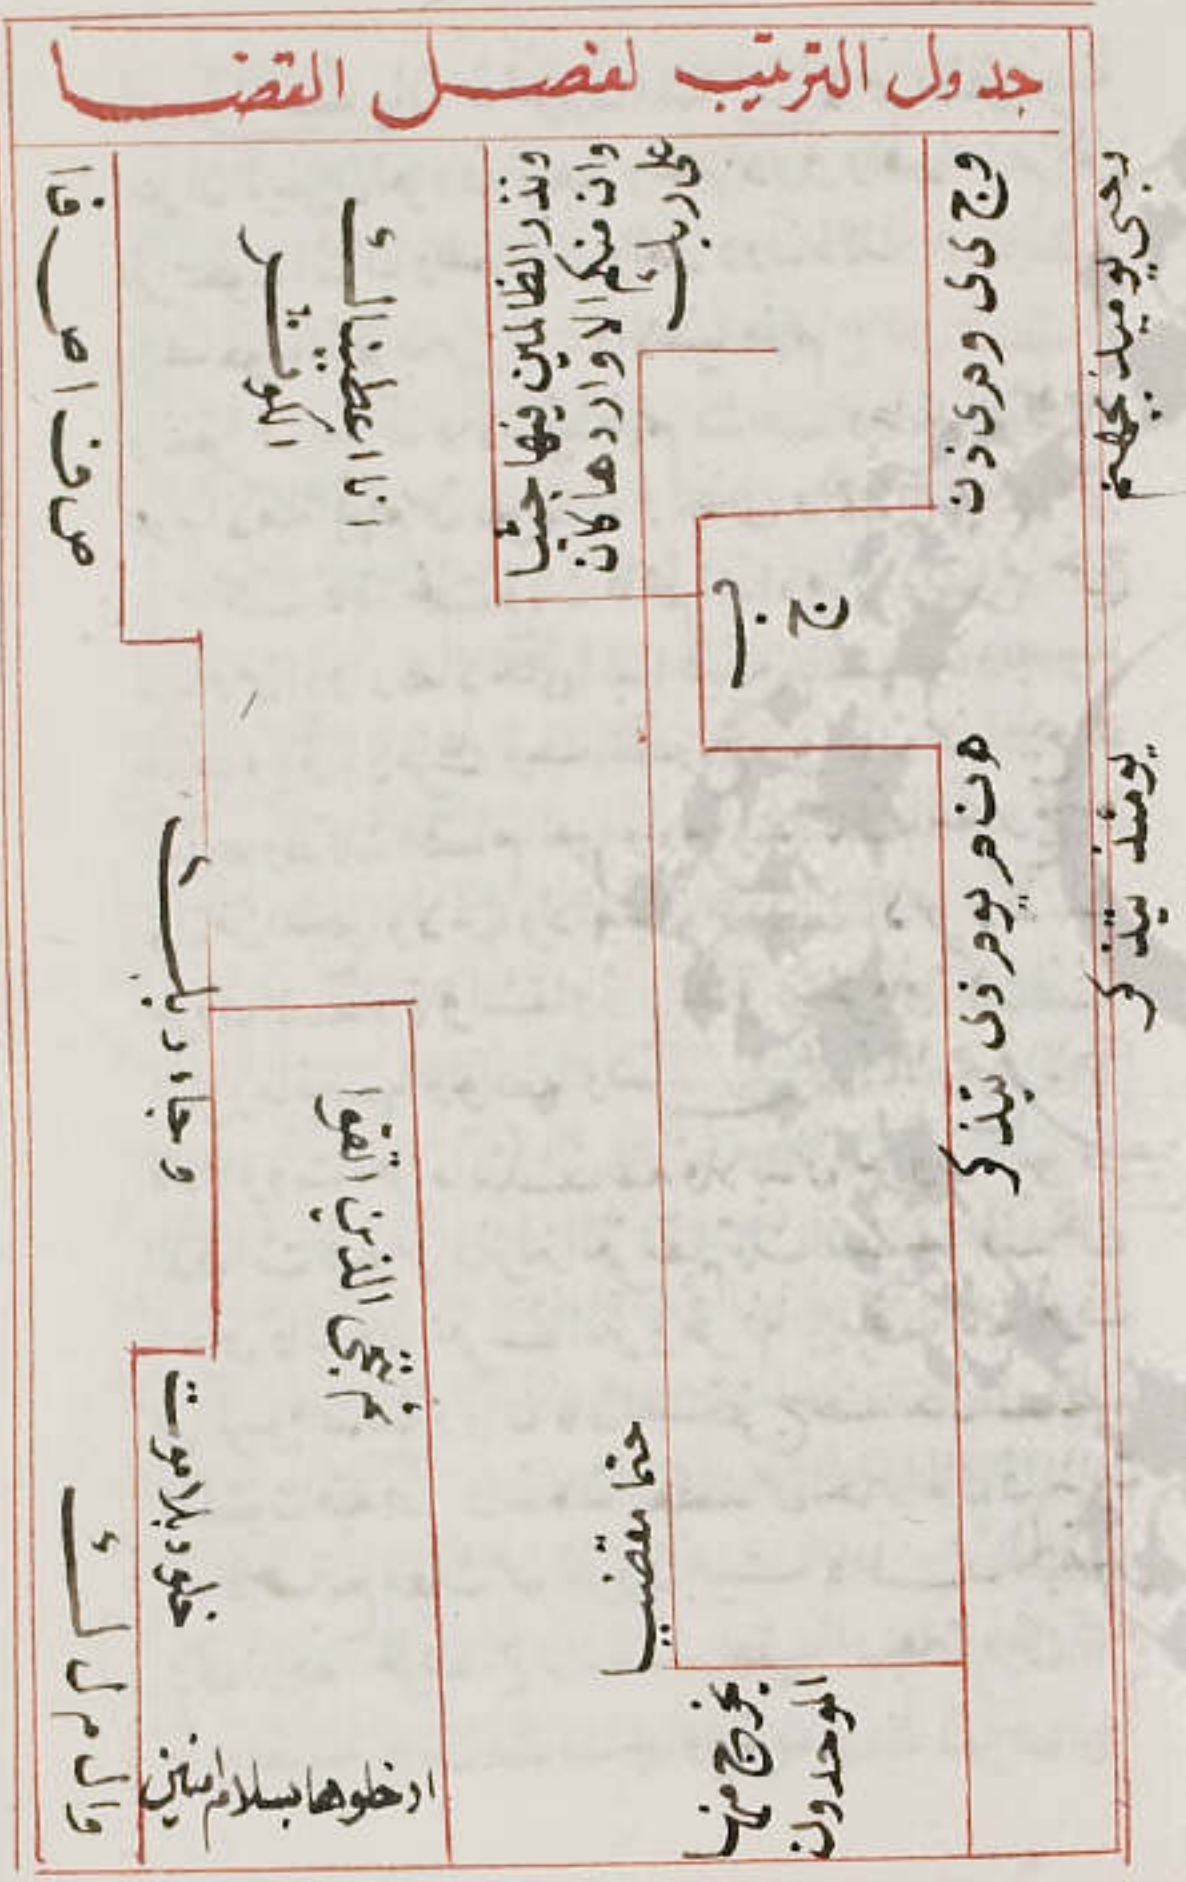 جدول الترتيب لفصل القضا
وجى يوميذ بجهنم
يومئذ يتذكر
و ج ى ى و م ى ذ ن
ج
ب
ه ن م يوم ذى يتذكر
على ربك
وان منكم الا واردها كان
ونذر الظالمين فيها جثيا
حتما مقضيا
الموحدون
يخرج منها
انا اعطيناك
الكوثر
ثم ننجى الذين اتقوا
وجاء ربك
خلود بلا موت
ادخلوها بسلام امنين
وا ل م ل ك
ص ف ا ص ف ا